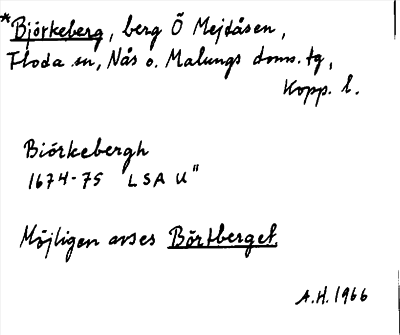 *Björkeberg, berg Ö Mejdåsen,
Floda sn, Nås o. Malungs doms. tg,
Kopp. l.
Biörkebergh
1674-75 LSA U"
Möjligen avses Börtberget.
A.H. 1966